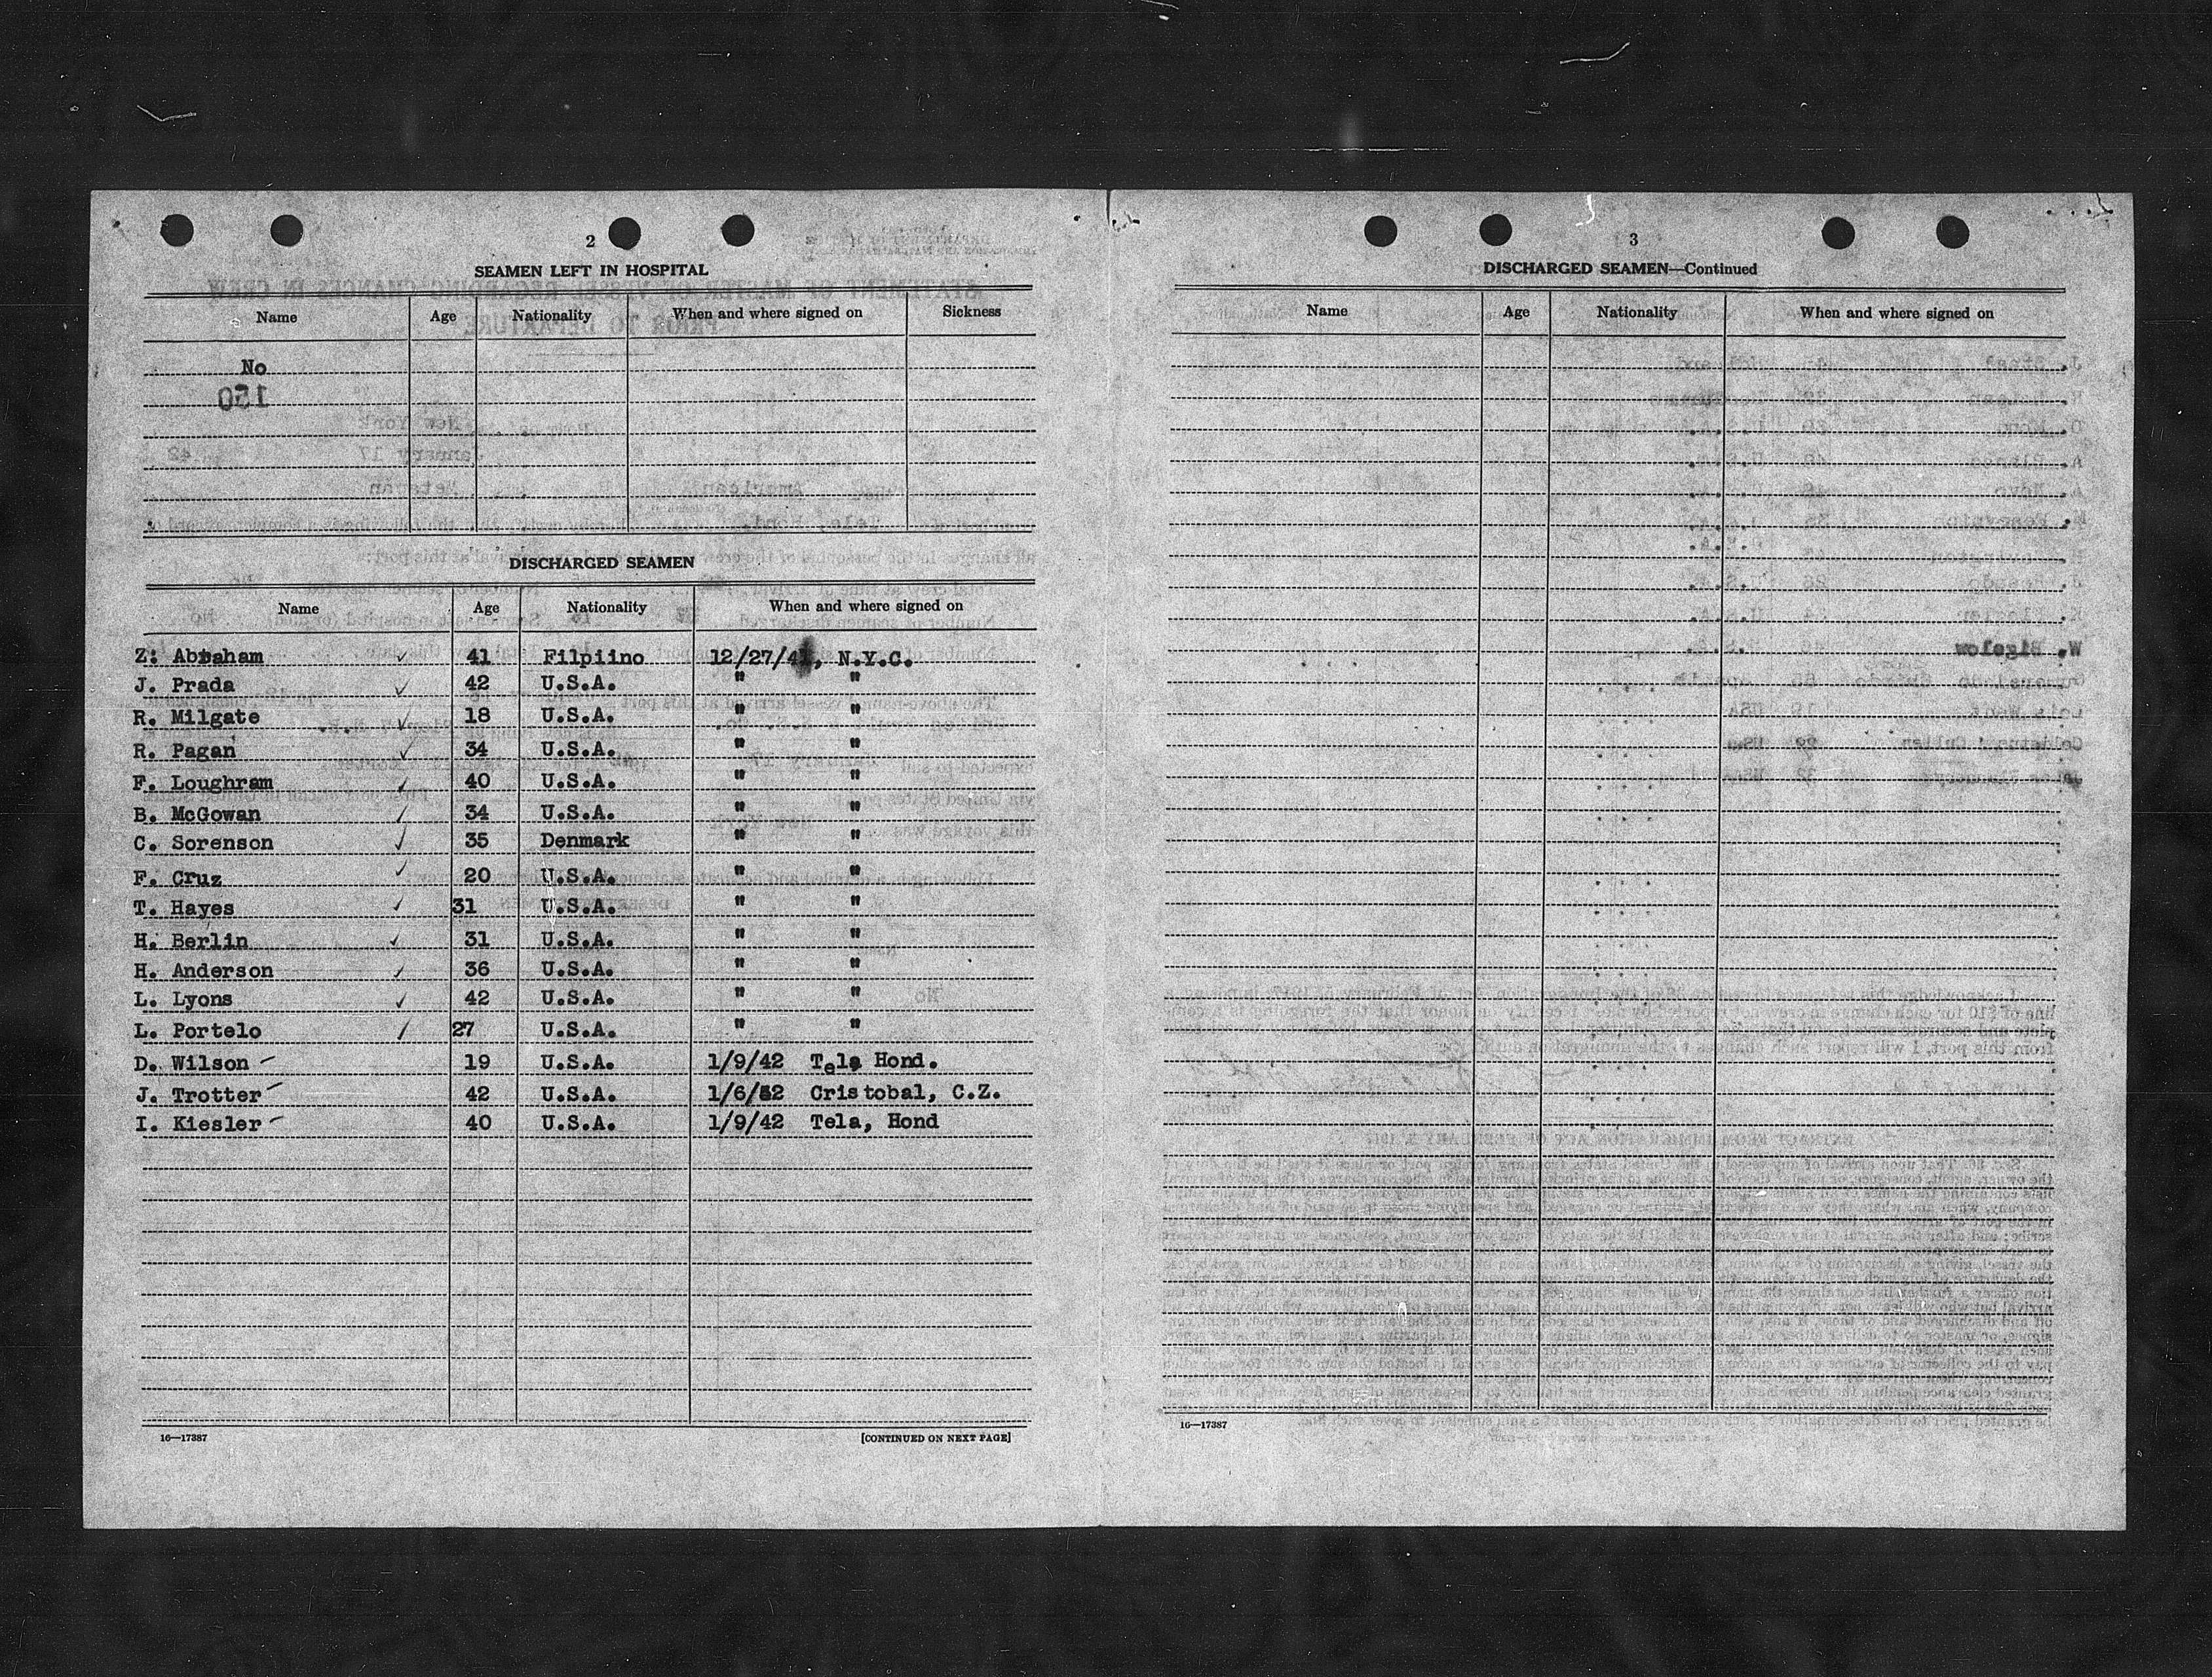 2
SEAMEN LEFT IN HOSPITAL
Name Age Nationality When and where signed on Sickness
No
150
DISCHARGED SEAMEN
Name Age Nationality When and where signed on
Z. Abraham 41 Filpiino 12/27/41, N.Y.C.
J. Prada 42 U.S.A. " "
R. Milgate 18 U.S.A. " "
R. Pagan 34 U.S.A. " "
F. Loughram 40 U.S.A. " "
B. McGowan 34 U.S.A. " "
C. Sorenson 35 Denmark " "
F. Cruz 20 U.S.A. " "
T. Hayes 31 U.S.A. " "
H. Berlin 31 U.S.A. " "
H. Anderson 36 U.S.A. " "
L. Lyons 42 U.S.A. " "
L. Portelo 27 U.S.A. " "
D. Wilson 19 U.S.A. 1/9/42 Tela Hond.
J. Trotter 42 U.S.A. 1/6/42 Cristobal, C.Z.
I. Kiesler 40 U.S.A. 1/9/42 Tela, Hond
16—17387 [CONTINUED ON NEXT PAGE]
3
DISCHARGED SEAMEN—Continued
Name Age Nationality When and where signed on
16—17387